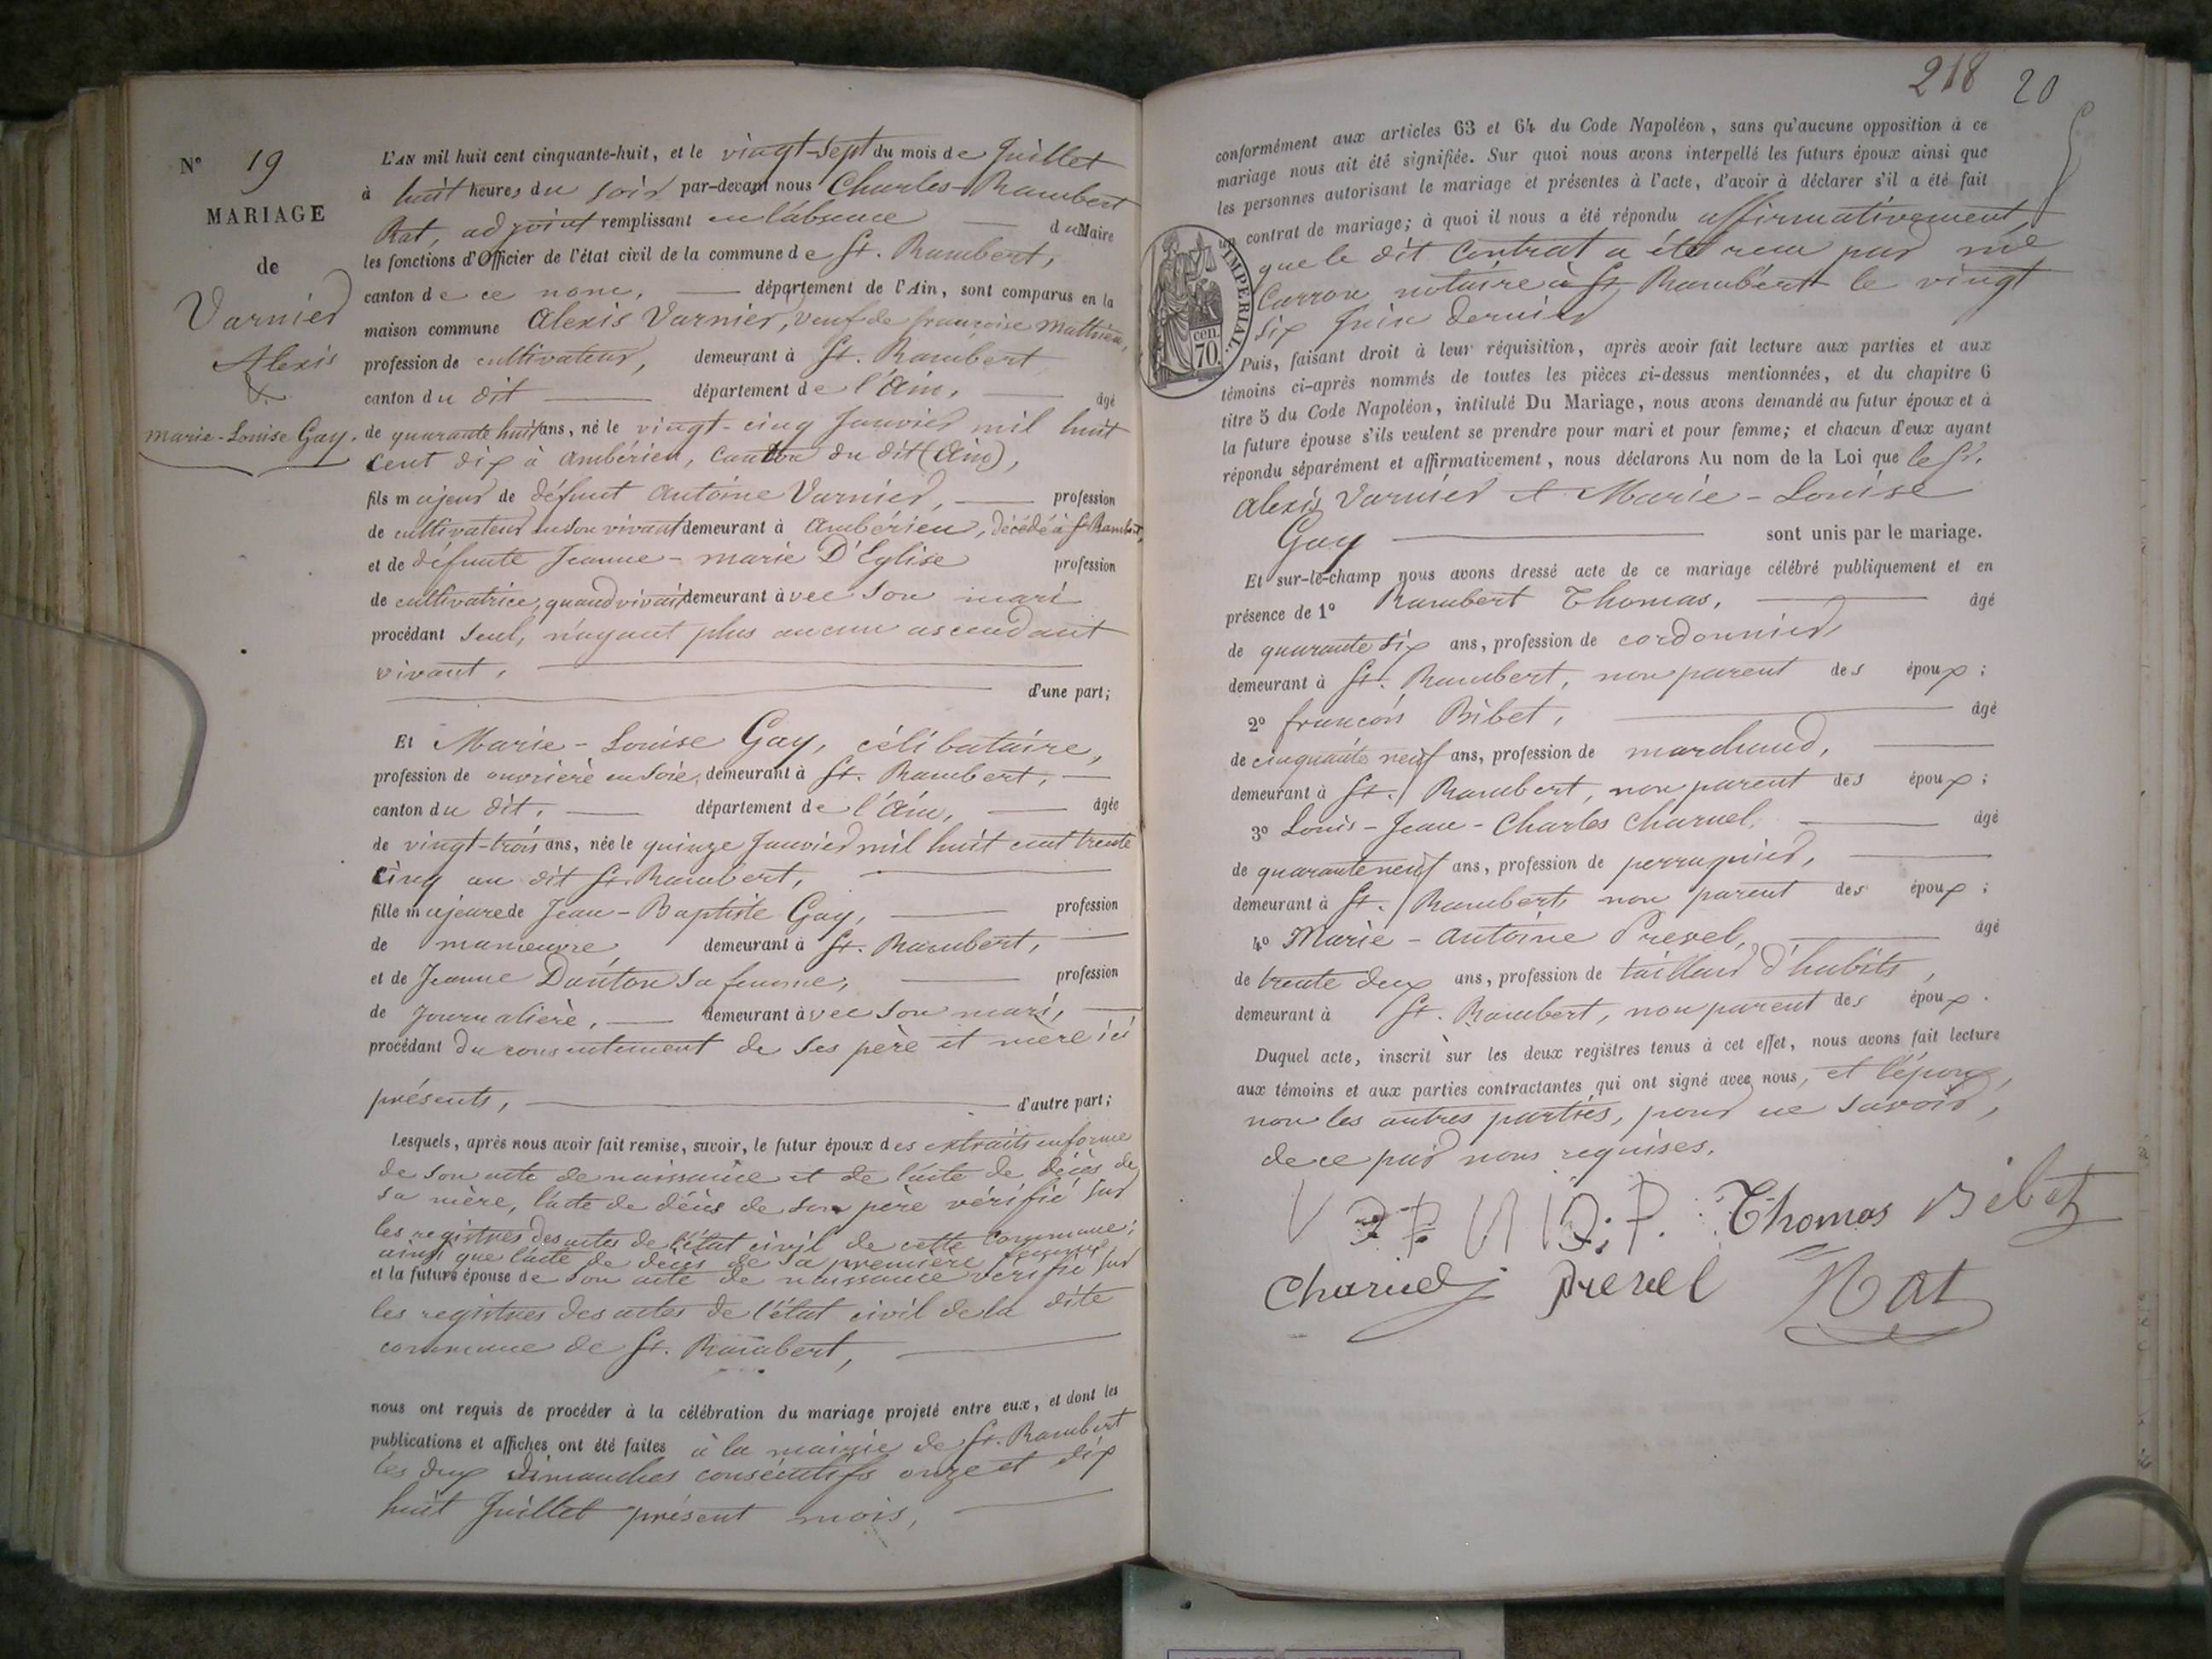 N° 19
MARIAGE
de
Varnier
Alexis
&
marie-Louise Gay.
L'AN mil huit cent cinquante-huit, et le vingt-sept du mois de Juillet
à huit heures du soir par-devant nous Charles-Rambert
Rat, adjoint remplissant en l'absence du Maire
les fonctions d'Officier de l'état civil de la commune de St. Rambert,
canton de ce nom, département de l'Ain, sont comparus en la
maison commune Alexis Varnier, veuf de françoise Mathieu,
profession de cultivateur, demeurant à St. Rambert
canton du dit département de l'Ain, âgé
de quarante huit ans, né le vingt-cinq Janvier mil huit
cent dix à Ambérieu, Canton du dit (Ain),
fils majeur de défunt Antoine Varnier, profession
de cultivateur en son vivant demeurant à Ambérieu, décédé à St Rambert,
et de défunte Jeanne-marie D'Eglise profession
de cultivatrice, quand vivait demeurant avec son mari
procédant seul, n'ayant plus aucun ascendant
vivant,
d'une part;
Et Marie-Louise Gay, célibataire,
profession de ouvrière en soie, demeurant à St. Rambert,
canton du dit, département de l'Ain, âgée
de vingt-trois ans, née le quinze Janvier mil huit cent trente
cinq au dit St. Rambert,
fille majeure de Jean-Baptiste Gay, profession
de manoeuvre, demeurant à St. Rambert,
et de Jeanne Danton sa femme, profession
de Journalière, demeurant avec son mari,
procédant du consentement de ses père et mère ici
présents, d'autre part;
Lesquels, après nous avoir fait remise, savoir, le futur époux des extraits en forme
de son acte de naissance et de l'acte de décès de
sa mère, l'acte de décès de son père vérifié sur
les registres des actes de l'état civil de cette Commune;
ainsi que l'acte de décès de sa première femme
et la future épouse de son acte de naissance vérifié sur
les registres des actes de l'état civil de la dite
commune de St. Rambert,
nous ont requis de procéder à la célébration du mariage projeté entre eux, et dont les
publications et affiches ont été faites à la mairie de St. Rambert
les deux dimanches consécutifs onze et dix
huit Juillet présent mois,
218 20
conformément aux articles 63 et 64 du Code Napoléon, sans qu'aucune opposition à ce
mariage nous ait été signifiée. Sur quoi nous avons interpellé les futurs époux ainsi que
les personnes autorisant le mariage et présentes à l'acte, d'avoir à déclarer s'il a été fait
un contrat de mariage; à quoi il nous a été répondu affirmativement,
que le dit Contrat a été reçu par me
Carron notaire à St Rambert le vingt
six Juin dernier
IMPERIAL
cen.
70.
Puis, faisant droit à leur réquisition, après avoir fait lecture aux parties et aux
témoins ci-après nommés de toutes les pièces ci-dessus mentionnées, et du chapitre 6
titre 5 du Code Napoléon, intitulé Du Mariage, nous avons demandé au futur époux et à
la future épouse s'ils veulent se prendre pour mari et pour femme; et chacun d'eux ayant
répondu séparément et affirmativement, nous déclarons Au nom de la Loi que le Sr.
Alexis Varnier et Marie-Louise
Gay sont unis par le mariage.
Et sur-le-champ nous avons dressé acte de ce mariage célébré publiquement et en
présence de 1° Rambert Thomas, âgé
de quarante six ans, profession de cordonnier
demeurant à St. Rambert, non parent des époux;
2° françois Bibet, âgé
de cinquante neuf ans, profession de marchand,
demeurant à St. Rambert, non parent des époux;
3° Louis-Jean-Charles Charuel, âgé
de quarante neuf ans, profession de perruquier,
demeurant à St. Rambert, non parent des époux;
4° Marie-Antoine Prevel, âgé
de trente deux ans, profession de tailleur d'habits,
demeurant à St. Rambert, non parent des époux.
Duquel acte, inscrit sur les deux registres tenus à cet effet, nous avons fait lecture
aux témoins et aux parties contractantes qui ont signé avec nous, et l'époux,
non les autres parties, pour ne savoir,
de ce par nous requises.
Thomas Bibet
Charuel prevel Rat